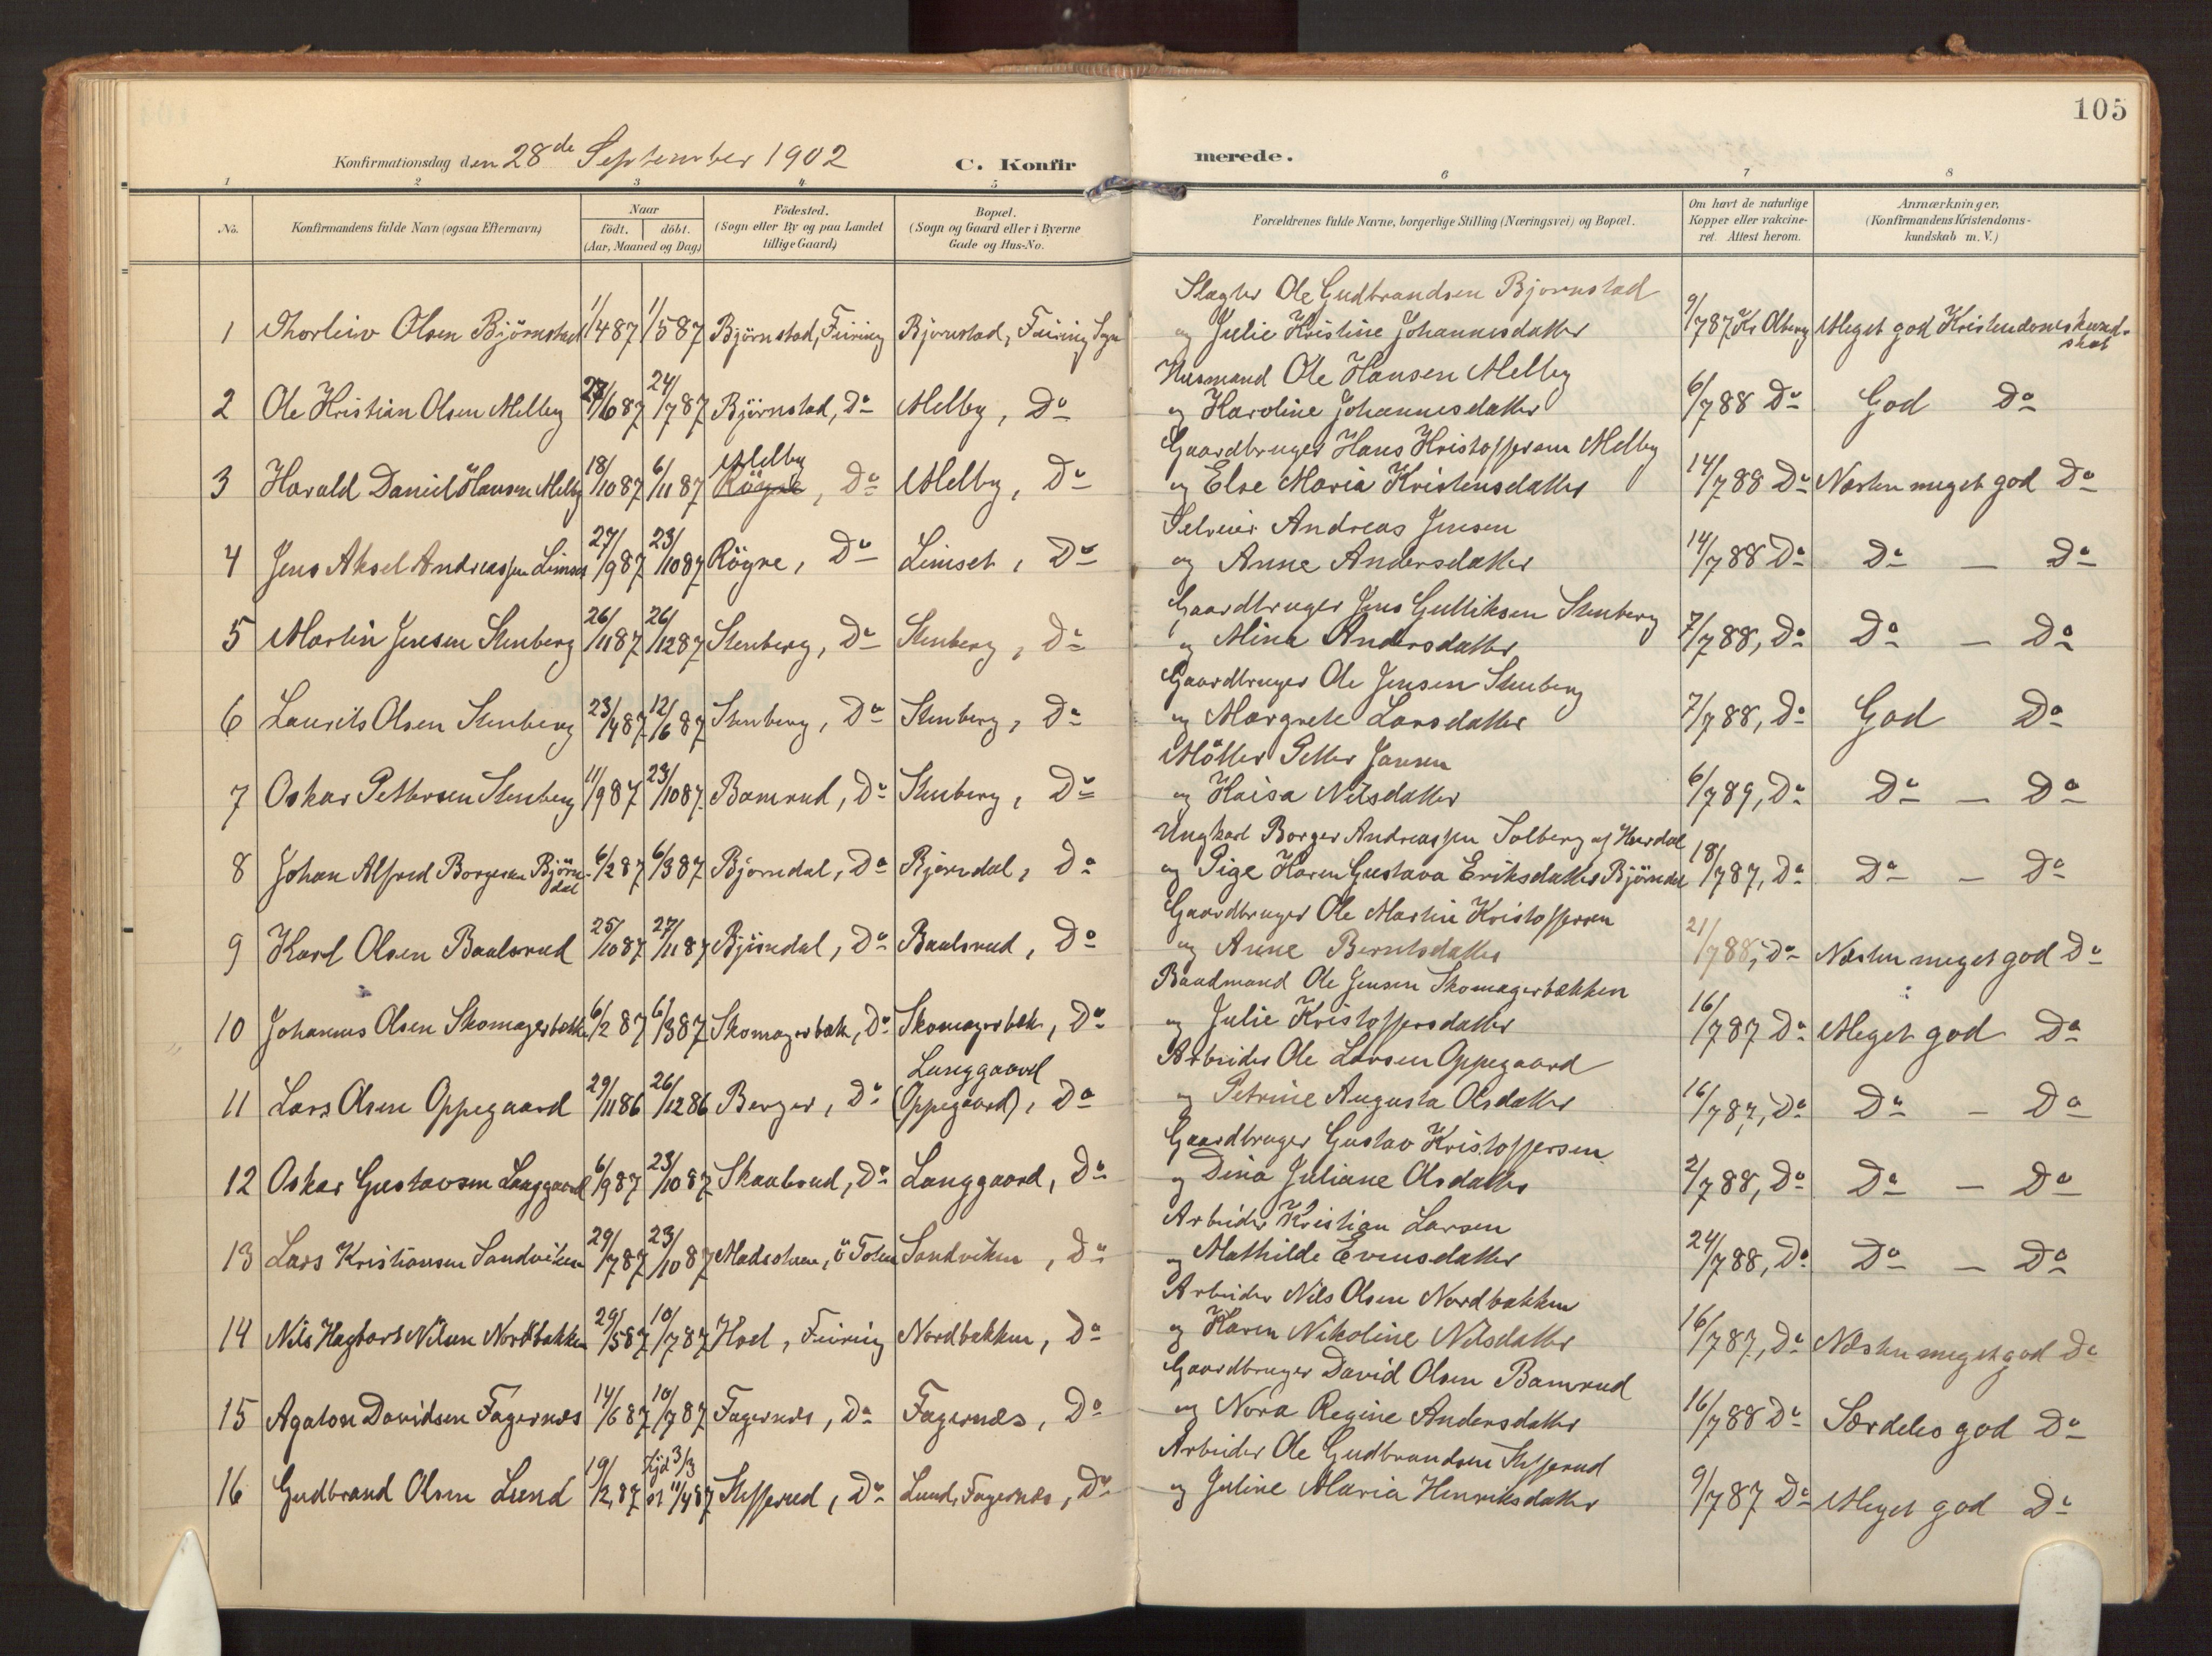 105
Konfirmationsdag den 28de September 1902 C. Konfirmerede.
1 2 3 4 5 6 7 8
No. Konfirmandens fulde Navn (ogsaa Efternavn) Naar födt. döbt. (Aar, Maaned og Dag) Födested. (Sogn eller By og paa Landet tillige Gaard) Bopæl. (Sogn og Gaard eller i Byerne Gade og Hus-No. Forældrenes fulde Navne, borgerlige Stilling (Næringsvei) og Bopæl. Om havt de naturlige Kopper eller vakcineret. Attest herom. Anmærkninger. (Konfirmandens Kristendomskundskab m. V.)
Slagter Ole Gudbrandsen Bjørnstad
1 Thorleiv Olsen Björnstad 1/4 87 1/5 87 Björnstad, Feiring Bjørnstad, Feiring Sogn og Julie Kristine Johannesdatter 9/7 87 Kr Olberg Meget god Kristendomskundskab
Husmand Ole Hansen Melby
2 Ole Kristian Olsen Melby 27/6 87 24/7 87 Björnstad, Do Melby, Do og Karoline Johannesdatter 6/7 88 Do God Do
Gaardbruger Hans Kristoffersen Melby
Melby
3 Harald Daniel Hansen Melby 18/10 87 6/11 87 Rögne, Do Melby, Do og Else Maria Kristensdatter 14/7 88 Do Næsten meget god Do
Selveier Andreas Jensen
4 Jens Aksel Andreassen Limset 27/9 87 23/10 87 Rögne, Do Limset, Do og Anne Andersdatter 14/7 88 Do Do — Do
Gaardbruger Jens Gulliksen Stenberg
5 Martin Jensen Stenberg 26/11 87 26/12 87 Stenberg, Do Stenberg, Do og Mina Andersdatter 7/7 88, Do Do — Do
Gaardbruger Ole Jensen Stenberg
6 Laurits Olsen Stenberg 23/4 87 12/6 87 Stenberg, Do Stenberg, Do og Margrete Larsdatter 7/7 88, Do God Do
Möller Petter Jansen
7 Oskar Pettersen Stenberg 11/9 87 23/10 87 Bamrud, Do Stenberg, Do og Kaisa Nilsdatter 6/7 89, Do Do — Do
Ungkarl Borger Andreassen Solberg af Hurdal
8 Johan Alfred Borgersen Björndal 6/2 87 6/3 87 Björndal, Do Bjørndal, Do og Pige Karen Gustava Eriksdatter Björndal 18/7 87, Do Do — Do
Gaardbruger Ole Martin Kristoffersen
9 Karl Olsen Baalsrud 25/10 87 27/11 87 Björndal, Do Baalsrud, Do og Anne Berntsdatter 21/7 88, Do Næsten meget god Do
Baadmand Ole Jensen Skomagerbækken
10 Johannes Olsen Skomagerbækken 6/2 87 6/3 87 Skomagerbæk, Do Skomagerbæk, Do og Julie Kristoffersdatter 16/7 87 Do Meget god Do
Arbeider Ole Larsen Oppegaard
Langgaard
11 Lars Olsen Oppegaard 29/11 86 26/12 86 Berger, Do (Oppegaard), Do og Petrine Augusta Olsdatter 16/7 87, Do Do — Do
Gaardbruger Gustav Kristoffersen
12 Oskar Gustavsen Langgaard 6/9 87 23/10 87 Skaabrud, Do Langgaard, Do og Dina Juliane Olsdatter 2/7 88, Do Do — Do
Arbeider Kristian Larsen
13 Lars Kristiansen Sandviken 29/7 87 23/10 87 Madsstuen, Ö Toten Sandviken, Do og Mathilde Evensdatter 24/7 88, Do Do — Do
Arbeider Nils Olsen Nordbækken
14 Nils Hagbart Nilsen Nordbækken 29/5 87 10/7 87 Hoel, Feiring Nordbækken, Do og Karen Nikoline Nilsdatter 16/7 87, Do Næsten meget god Do
Gaardbruger David Olsen Bamrud
15 Agaton Davidsen Fagernæs 14/6 87 10/7 87 Fagernæs, Do Fagernæs, Do og Nora Regine Andersdatter 16/7 88 Do Særdeles god Do
Arbeider Ole Gudbrandsen Stefferud
16 Gudbrand Olsen Lund 19/2 87 Hjd 3/3 11/4 87 Stefferud, Do Lund, Fagernæs, Do og Juline Maria Henriksdatter 9/7 87 Do Meget god Do